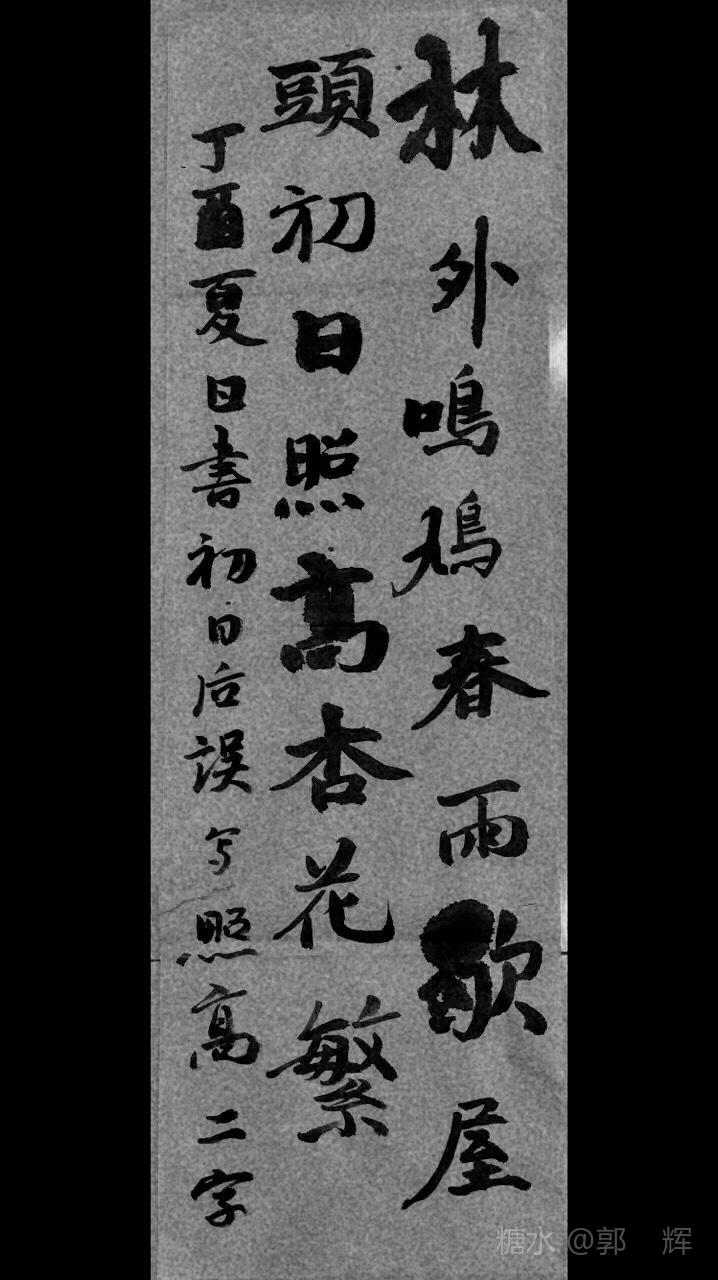 林外鳴鳩春雨歇屋
頭初日照高杏花繁
丁酉夏日書初日后誤写照高二字
糖水 @郭 辉